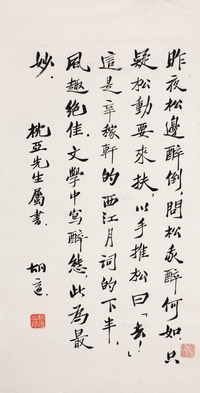 昨夜松邊醉倒,問松我醉何如.只
疑松動要來扶,以手推松曰「去!」
這是辛稼軒的西江月詞的下半,
風趣絕佳.文學中寫醉態,此為最
妙.
枕亞先生屬書. 胡適.